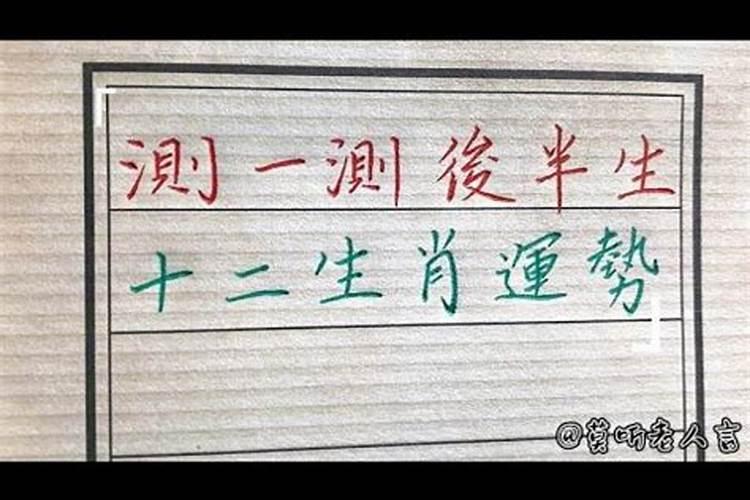 測一測後半生
十二生肖運勢
@莫听老人言